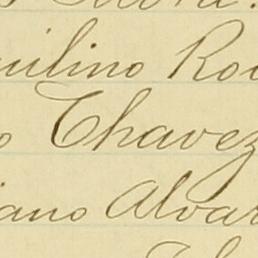 uilino Rod
o Chavez
iano Alvar